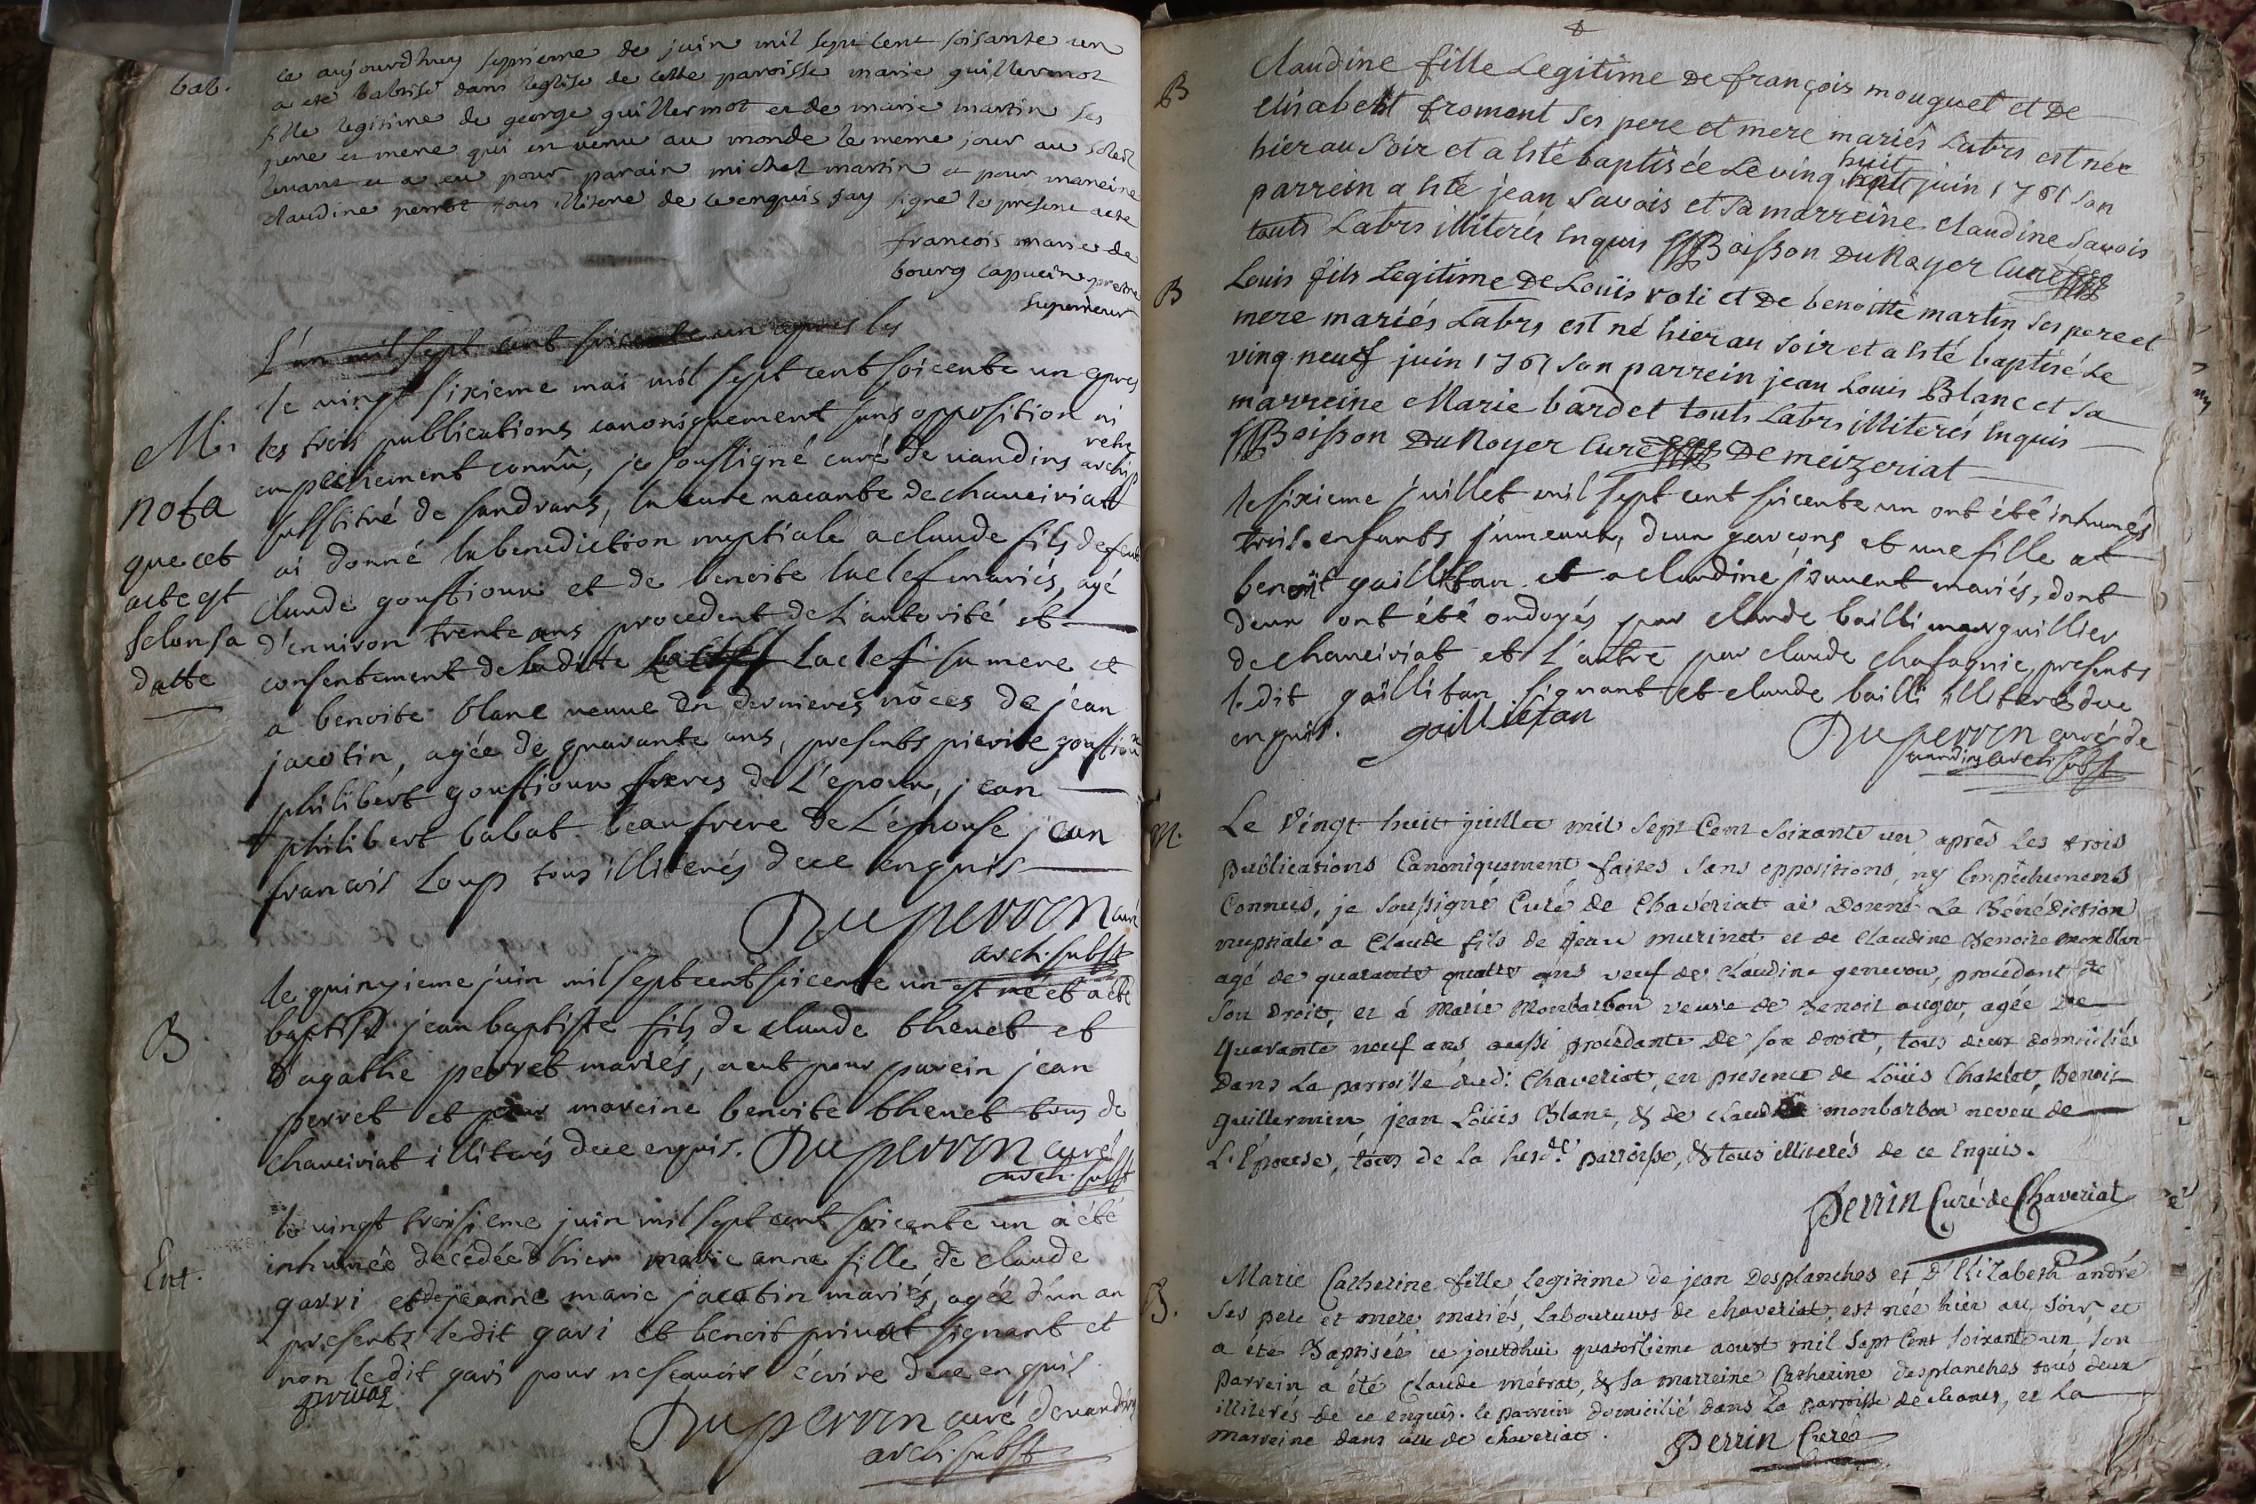 bab.
ce aujourdhuy septieme de juin mil sept cent soisante un
a ete babtisé dans leglise de cette paroisse marie guillermot
fille legitime de george guillermot et de marie martin ses
pere et mere qui en venu au monde le meme jour au soleil
levant et a eu pour parain michel martin et pour mareine
claudine perrot tous illiteré de ce enquis jay signé le present acte
francois marie de
bourg capucin prestre
superieur
L'an mil sept cent soicente un apres les
Ma
nota
que cet
acte est
selon sa
datte
le vingt sixieme mai mil sept cent soicente un apres
les trois publications canoniquement sans opposition ni
empechement connû, je soussigné curé de vandins archi
substitué de sandrans, la cure vacante de chaveiriatt
ai donné la benediction nuptiale a claude fils de feu
claude gouffioux et de benoite laclef mariés, agé
d'environ trente ans procedent de L'autorité et
consentement de ladite laclef sa mere et
a benoite blanc veuve en dernieres nôces de jean
jacotin, agée de quarante ans, presents pierre gouffioux
philibert gouffioux freres de L'epoux, jean
philibert babat beaufrere de L'épouse jean
francois Loup tous illiterés de ce enquis
Duperron curé
arch. subst
B
le quinzieme juin mil sept cent soicente un est né et a été
baptisé jean baptiste fils de claude thevet et
d'agathe perret mariés, a eut pour parein jean
perret et pour mareine benoite thevet tous de
chaveiriat illiterés de ce enquis. Duperron curé
arch. subst
Ent.
le vingt troisieme juin mil sept cent soicente un a été
inhumée decédée d'hier marie anne fille de claude
garri et de jeanne marie jacotin mariés, agée d'un an
presents ledit gari et benoit privat signant et
non ledit gari pour ne scavoir écrire de ce enquis
privat
Duperron curé de vandins
arch. subst
B
Claudine fille Legitime De françois mouguet et De
elisabeth froment ses pere et mere mariés Labrs est née
hier au Soir et a hté baptisée Le ving huit juin 1761 son
parrein a hté jean Savois et sa marreine claudine Savois
touts Labrs illiterés Enquis Boisson DuRoyer Curé
B
Louis fils Legitime De Loüis roli et De benoitte martin ses pere et
mere mariés Labrs est né hier au soir et a hté baptisé Le
ving neuf juin 1761 son parrein jean Louis Blanc et sa
marreine Marie bardet touts Labrs illiterés Enquis
Boisson DuRoyer Curé De meizeriat
le sixieme juillet mil sept cent soicente un ont été inhumés
trois enfants jumeaux, deux garçons et une fille at
benoît gaillitan et a claudine jouvent mariés, dont
deux ont été ondoyés par claude bailli marguillier
de chaveiriat et l'autre par claude chasagnie, presents
le dit gaillitan signant et claude bailli illiteré de ce
enquis. gaillietan
Duperron curé de
vandins arch. subst
M.
Le Vingt huit juillet mil sept Cent soixante un après les trois
Publications Canoniquement faites sans oppositions, ny Empêchemens
Connus, je soussigné Curé de Chaveriat ai Donné La Bénédiction
nuptiale a Claude fils de Jean murinet et de Claudine Benoite monblan
agé de quarante quatre ans veuf de Claudine genevou, procédant de
son Droit, et à Marie Monbarbon veuve de Benoit auger, agée De
quarante neuf ans aussi procédante de son droit, tous deux domiciliés
dans La parroisse dudt Chaveriat, en presence de Loüis Chatelot, Benoit
guillermin, jean Loüis Blanc, & de claude monbarbon neveu de
L'Épouse, tous de la susde parroisse, & tous illiterés de ce Enquis.
Perrin Curé de Chaveriat
B.
Marie Catherine fille Legitime de jean Desplanches et D'Elizabeth andré
ses pere et mere mariés, Laboureurs de chaveriat, est née hier au soir, et
a été Baptisée ce jourdhui quatorzieme aoust mil sept Cent soixante un, son
Parrein a été Claude métrat, & sa marreine Catherine desplanches tous deux
illiterés de ce enquis. le Parrein domicilié dans la parroisse de chanes, et la
marreine dans celle de chaveriat. Perrin Curé